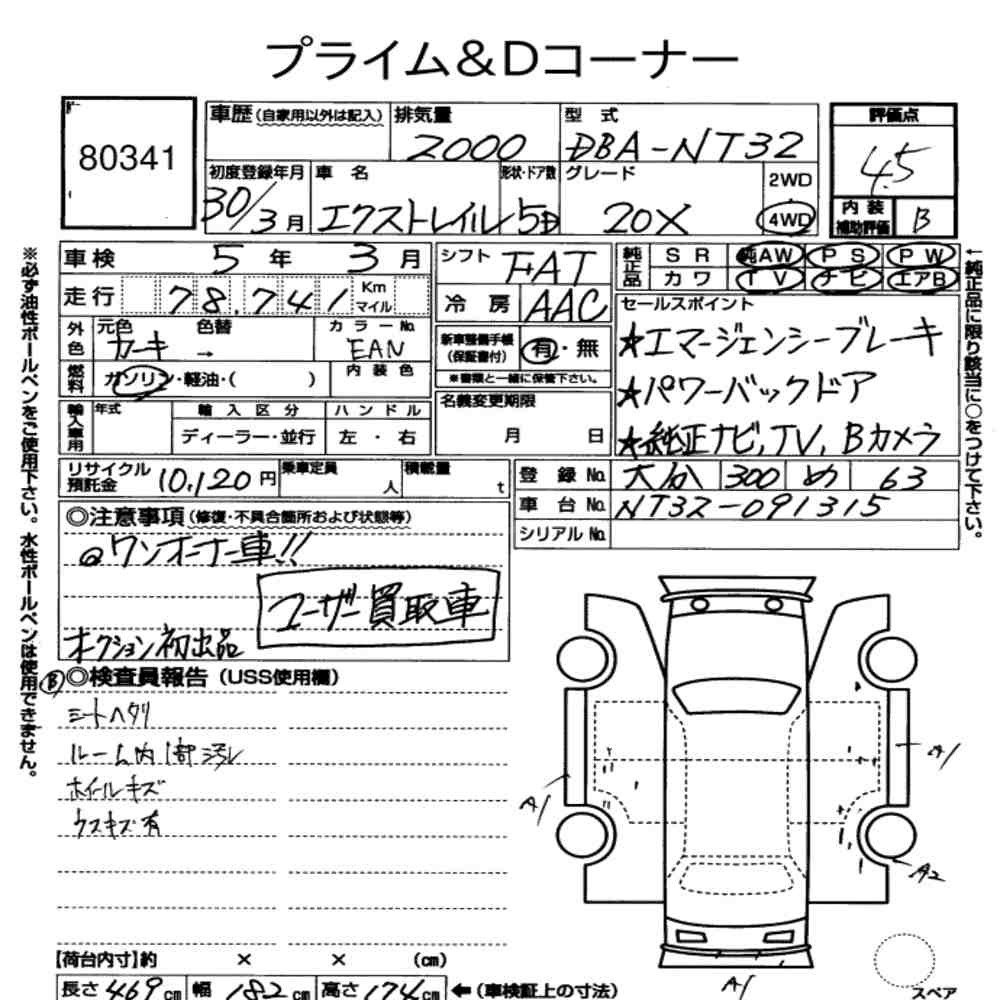 プライム&Dコーナー
80341
車歴(自家用以外は記入) 排気量 2000 型式 DBA-NT32 評価点 4.5
初度登録年月 30/3月 車名 エクストレイル 形状・ドア数 5D グレード 20X 2WD 4WD
内装補助評価 B
車検 5年 3月 シフト FAT 純正品 SR 純AW PS PW
カワ TV ナビ エアB
走行 78,741 Km マイル 冷房 AAC
セールスポイント
外色 元色 カーキ 色替 → カラーNo. EAN 新車整備手帳(保証書付) 有・無
★エマージェンシーブレーキ
燃料 ガソリン・軽油・( ) 内装色 ※書類と一緒に保管下さい。
★パワーバックドア
輸入車用 年式 輸入区分 ハンドル 名義変更期限
ディーラー・並行 左・右 月 日
★純正ナビ,TV,Bカメラ
リサイクル預託金 10,120円 乗車定員 人 積載量 t 登録No. 大分 300 め 63
車台No. NT32-091315
シリアルNo.
◎注意事項(修復・不具合箇所および状態等)
◎ワンオーナー車!!
ユーザー買取車
オークション初出品
Ⓑ◎検査員報告(USS使用欄)
シートヘタリ
ルーム内1部汚レ
ホイールキズ
ウスキズ有
A1
A1
A2
A1
【荷台内寸】約 × × (cm)
長さ 469cm 幅 182cm 高さ 174cm ←(車検証上の寸法)
スペア
※必ず油性ボールペンをご使用下さい。水性ボールペンは使用できません。
↑純正品に限り該当に○をつけて下さい。